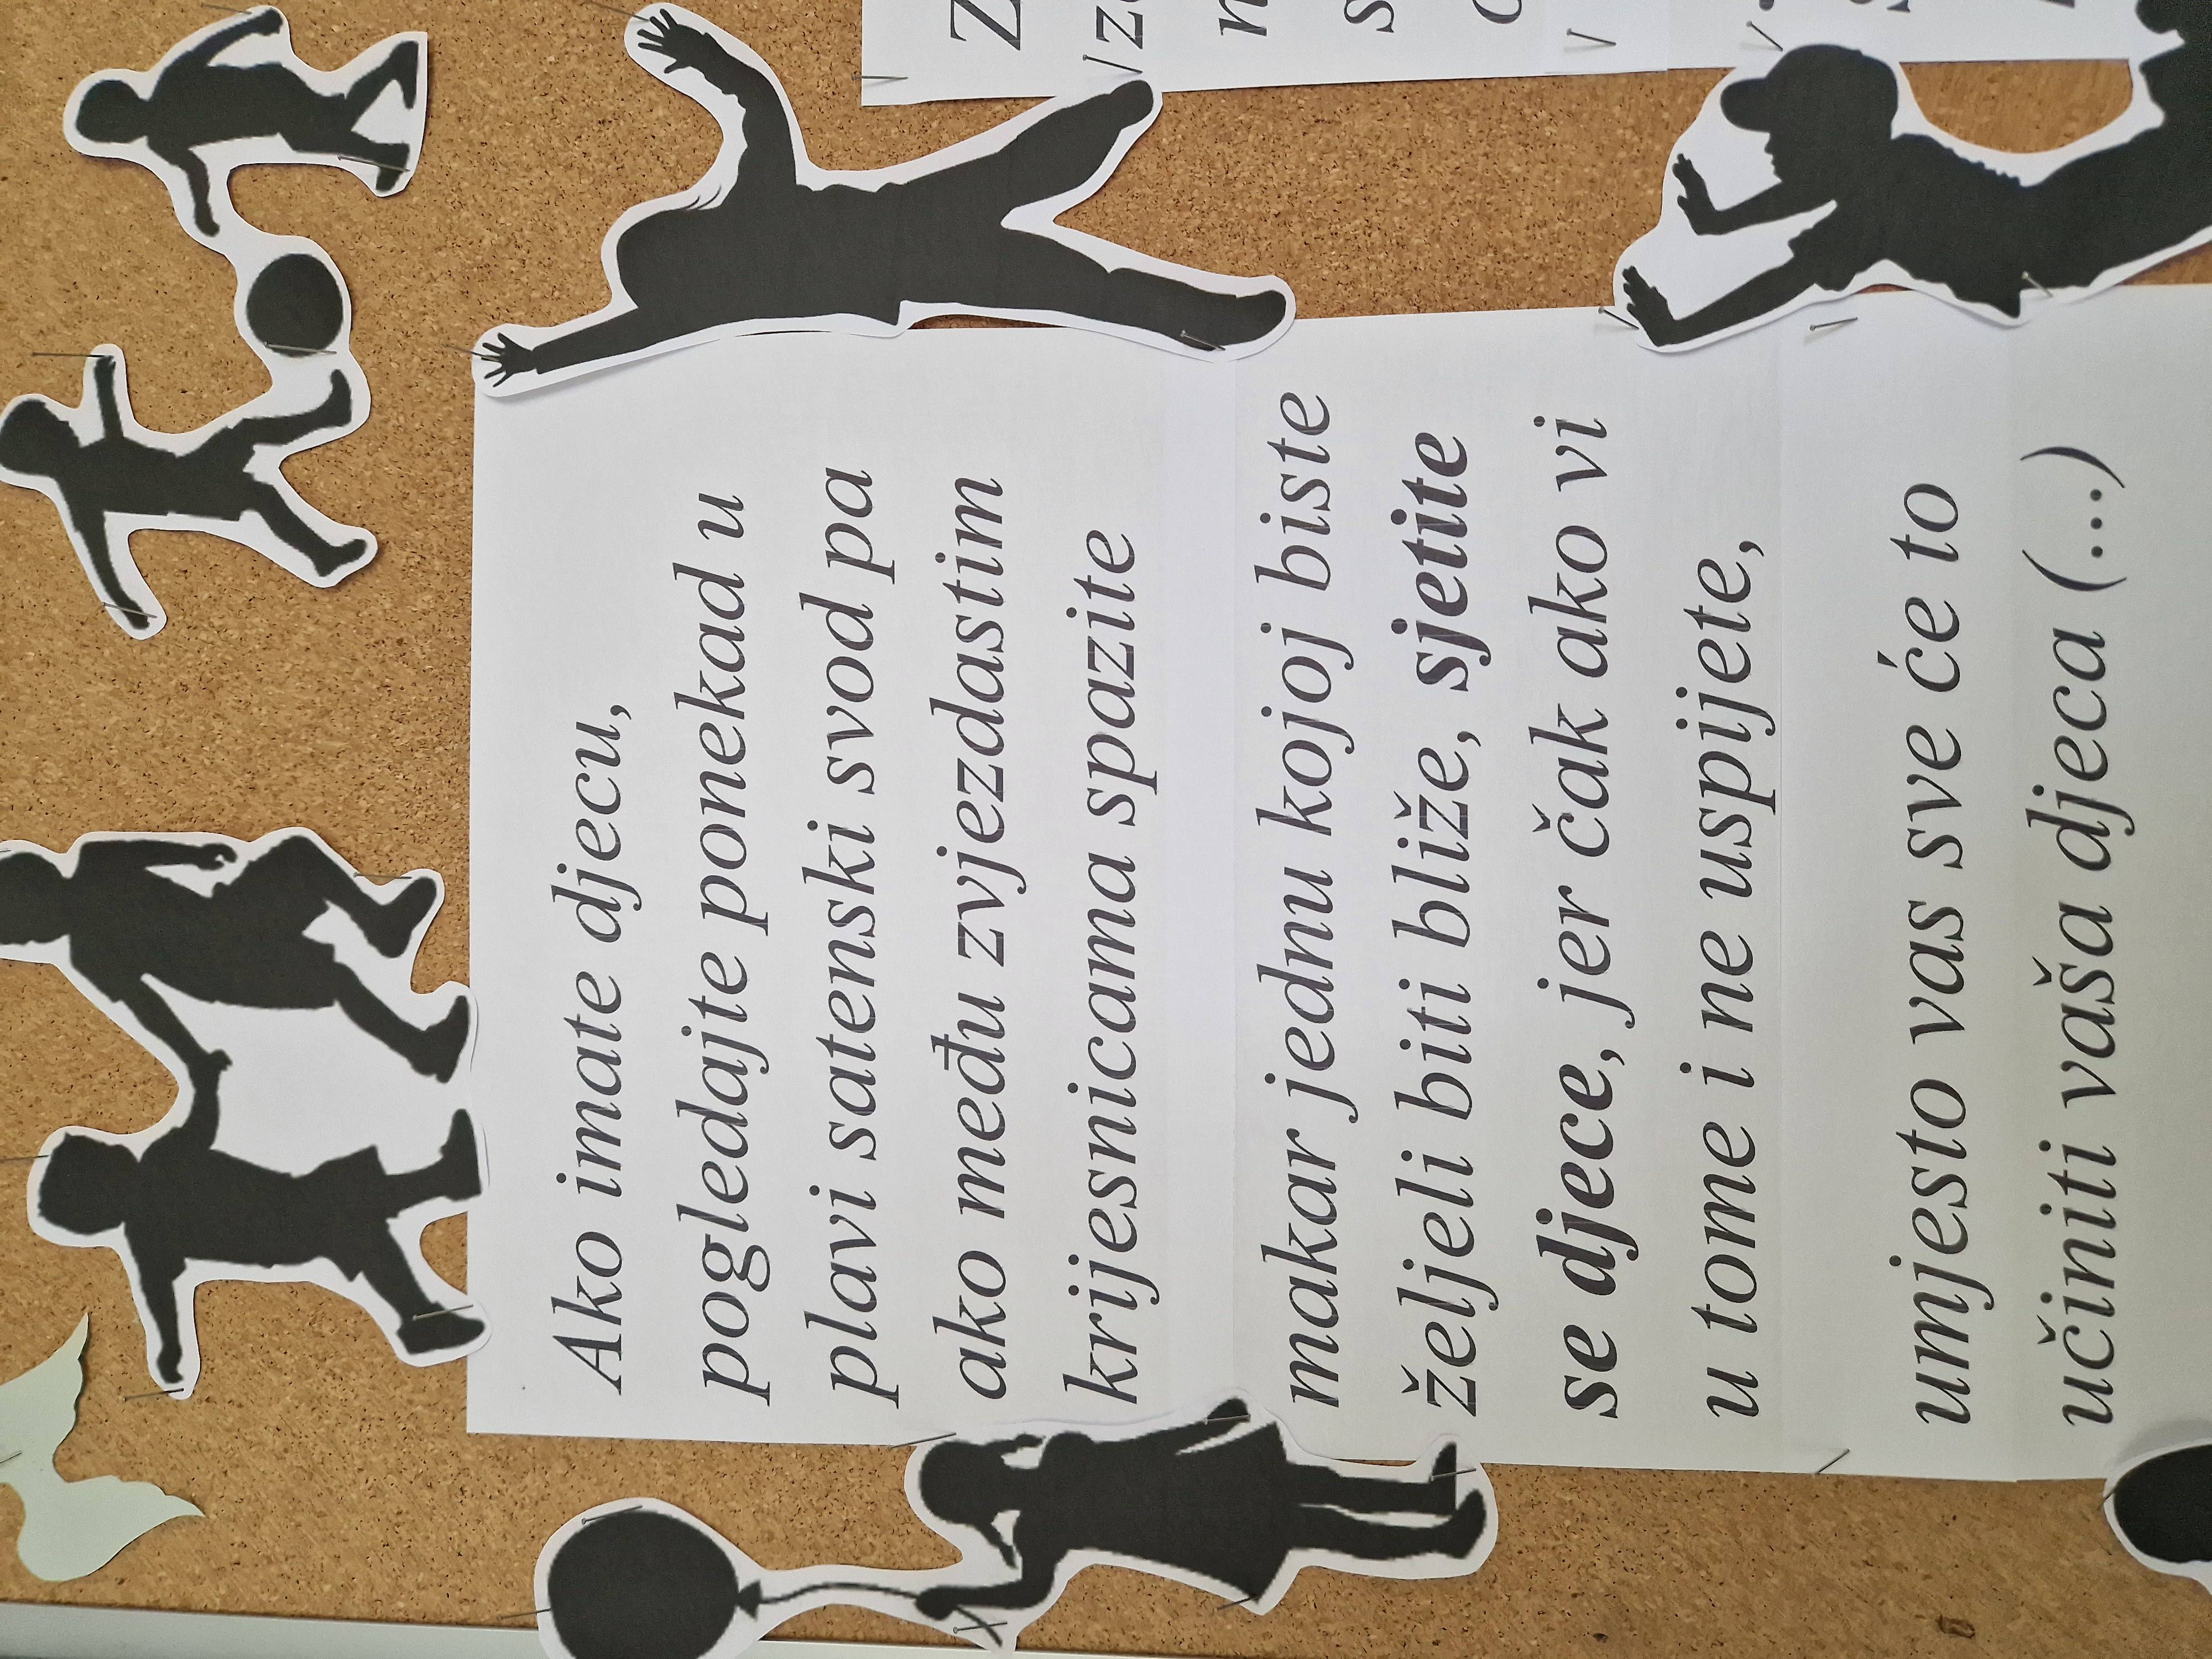 Ako imate djecu,
pogledajte ponekad u
plavi satenski svod pa
ako među zvjezdastim
krijesnicama spazite
makar jednu kojoj biste
željeli biti bliže, sjetite
se djece, jer čak ako vi
u tome i ne uspijete,
umjesto vas sve će to
učiniti vaša djeca (...)